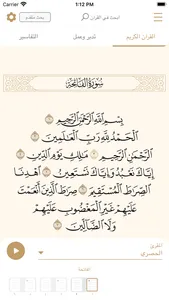 Carrier
1:12 PM
ابحث في القرآن
بحث متقدم
القرآن الكريم
تدبر وعمل
التفاسير
سُورَةُ الفَاتِحَةِ
بِسْمِ اللَّهِ الرَّحْمَٰنِ الرَّحِيمِ
الْحَمْدُ لِلَّهِ رَبِّ الْعَالَمِينَ
الرَّحْمَٰنِ الرَّحِيمِ مَالِكِ يَوْمِ الدِّينِ
إِيَّاكَ نَعْبُدُ وَإِيَّاكَ نَسْتَعِينُ اهْدِنَا
الصِّرَاطَ الْمُسْتَقِيمَ صِرَاطَ الَّذِينَ أَنْعَمْتَ
عَلَيْهِمْ غَيْرِ الْمَغْضُوبِ عَلَيْهِمْ
وَلَا الضَّالِّينَ
القارئ
الحصري
الفاتحة